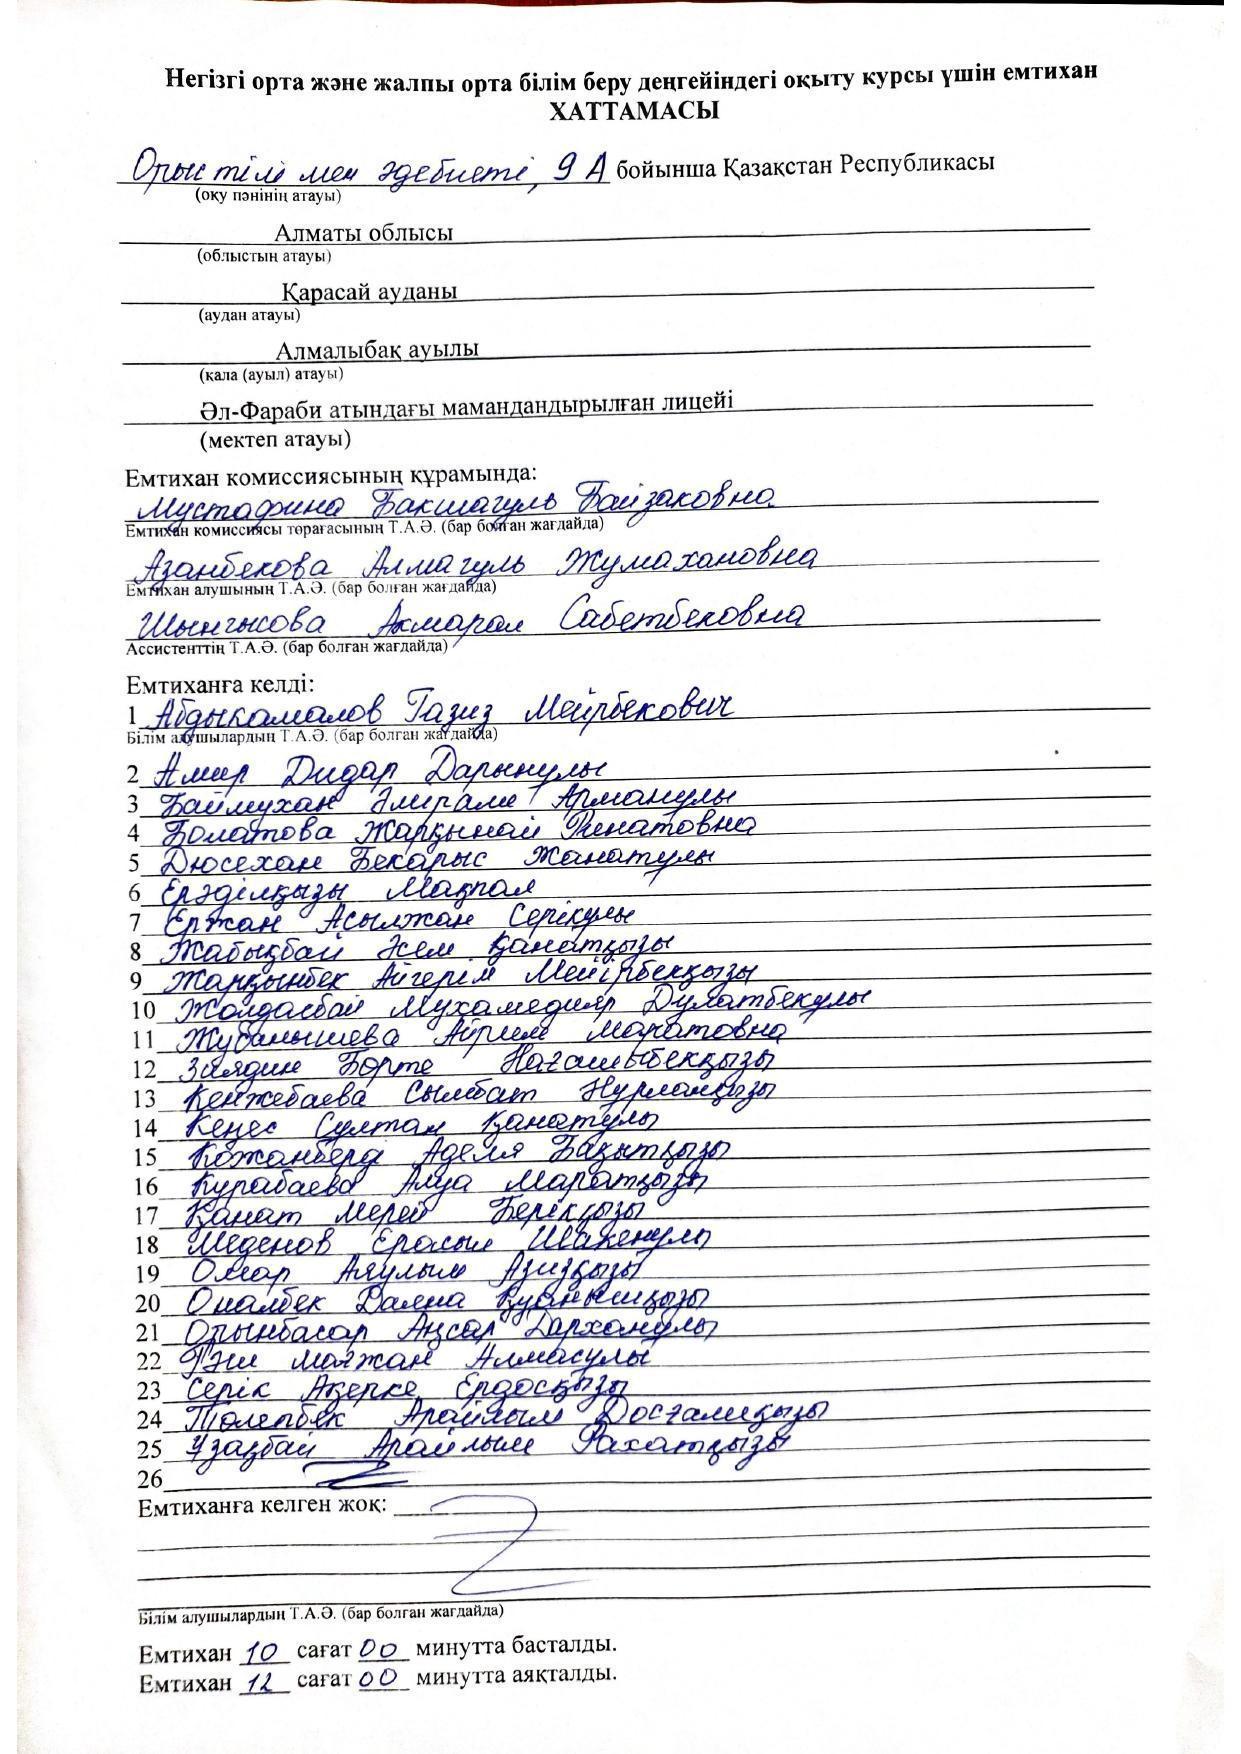 Негізгі орта және жалпы орта білім беру деңгейіндегі оқыту курсы үшін емтихан
ХАТТАМАСЫ
Орыс тілі мен әдебиеті, 9 А бойынша Қазақстан Республикасы
(оқу пәнінің атауы)
Алматы облысы
(облыстың атауы)
Қарасай ауданы
(аудан атауы)
Алмалыбақ ауылы
(қала (ауыл) атауы)
Әл-Фараби атындағы мамандандырылған лицейі
(мектеп атауы)
Емтихан комиссиясының құрамында:
Мустафина Бакшагуль Байзаковна
Емтихан комиссиясы төрағасының Т.А.Ә. (бар болған жағдайда)
Азанбекова Алмагуль Жумахановна
Емтихан алушының Т.А.Ә. (бар болған жағдайда)
Шынгысова Акмарал Сабетбековна
Ассистенттің Т.А.Ә. (бар болған жағдайда)
Емтиханға келді:
1 Абдыкамалов Газиз Мейрбекович
Білім алушылардың Т.А.Ә. (бар болған жағдайда)
2 Амир Дидар Дарынұлы
3 Баймухан Әмірәлі Арманұлы
4 Болатова Жарқынай Ринатовна
5 Дюсехан Бекарыс Жанатұлы
6 Ерәділқызы Мақпал
7 Ержан Асылжан Серікұлы
8 Жабықбай Әсем Қанатқызы
9 Жарқынбек Айгерім Мейірбекқызы
10 Жолдасбай Мухамедияр Дулатбекұлы
11 Жубанышева Айрим Маратовна
12 Зиядин Бөрте Нағашыбекқызы
13 Кенжебаева Сымбат Нурланқызы
14 Кеңес Султан Қанатұлы
15 Кожанберді Аделя Бақытқызы
16 Курабаева Алуа Маратқызы
17 Қанат Мерей Берікқызы
18 Меденов Ерасыл Шакенұлы
19 Омар Аяулым Азизқызы
20 Оналбек Даяна Қуанышқызы
21 Орынбасар Аңсар Дарханұлы
22 Рәш Мағжан Алмасұлы
23 Серік Ақерке Ердосқызы
24 Төлепбек Арайлым Досғалиқызы
25 Ұзақбай Арайлым Рахатқызы
26
Емтиханға келген жоқ:
Білім алушылардың Т.А.Ә. (бар болған жағдайда)
Емтихан 10 сағат 00 минутта басталды.
Емтихан 12 сағат 00 минутта аяқталды.